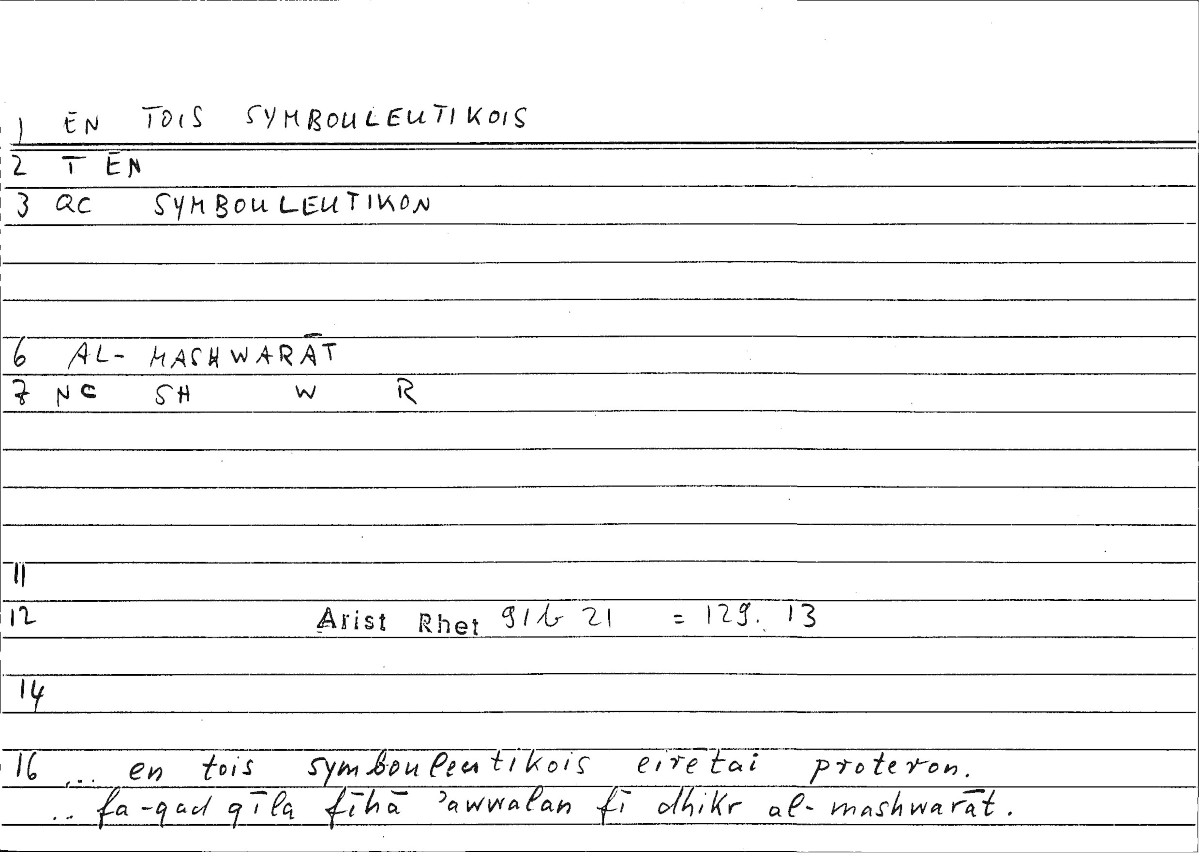 1 EN TOIS SYMBOULEUTIKOIS
2 T EN
3 QC SYMBOULEUTIKON
6 AL- MASHWARĀT
7 NC SH W R
11
12 Arist Rhet 91b 21 = 129. 13
14
16 ... en tois symbouleutikois eirētai proteron.
.. fa-qad qīla fīhā ʾawwalan fī dhikr al-mashwarāt.